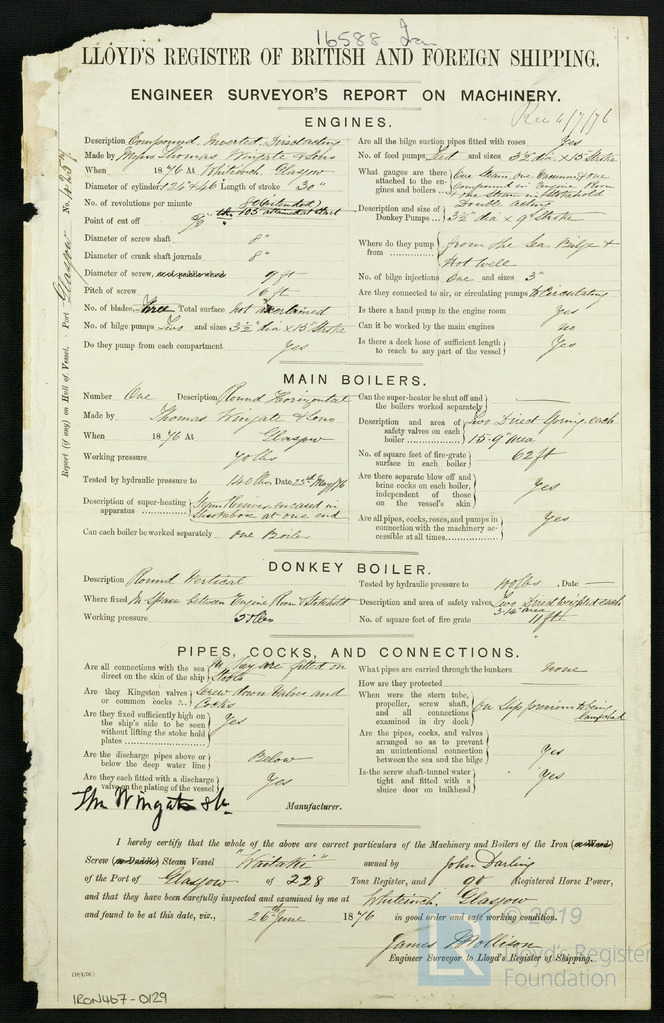 16588 Irn
LLOYD'S REGISTER OF BRITISH AND FOREIGN SHIPPING.
ENGINEER SURVEYOR'S REPORT ON MACHINERY.
Rec 4/7/76
Report (if any) on Hull of Vessel. Port Glasgow No. 4457
ENGINES.
Description Compound Inverted Direct acting
Made by Messrs Thomas Wingate & Sons
When 1876 At Whiteinch Glasgow
Diameter of cylinders 26 & 46 Length of stroke 30"
No. of revolutions per minute 80 (intended)
105 attained at start
Point of cut off
Diameter of screw shaft 8"
Diameter of crank shaft journals 8"
Diameter of screw, and paddle wheel 9 ft
Pitch of screw 16 ft
No. of blades Three Total surface not ascertained
No. of bilge pumps Two and sizes 3½" dia x 15" Stroke
Do they pump from each compartment Yes
Are all the bilge suction pipes fitted with roses Yes
No. of feed pumps Two and sizes 3½ dia x 15" Stroke
What gauges are there attached to the engines and boilers One Steam, One Vacuum & one Compound in Engine Room one Steam in Stokehold
Description and size of Donkey Pumps Double acting 3½" dia x 9" Stroke
Where do they pump from from the Sea, Bilge + Hot well
No. of bilge injections One and sizes 3"
Are they connected to air, or circulating pumps To Circulating
Is there a hand pump in the engine room Yes
Can it be worked by the main engines no
Is there a deck hose of sufficient length to reach to any part of the vessel Yes
MAIN BOILERS.
Number One Description Round Horizontal
Made by Thomas Wingate & Sons
When 1876 At Glasgow
Working pressure 70 lbs
Tested by hydraulic pressure to 140 lbs, Date 25th May/76
Description of super-heating apparatus Steam Receiver encased in Smokebox at one end
Can each boiler be worked separately one Boiler
Can the super-heater be shut off and the boilers worked separately —
Description and area of safety valves on each boiler Two Direct Spring each 15.9" area
No. of square feet of fire-grate surface in each boiler 62 ft
Are there separate blow off and brine cocks on each boiler, independent of those on the vessel's skin Yes
Are all pipes, cocks, roses, and pumps in connection with the machinery accessible at all times Yes
DONKEY BOILER.
Description Round Vertical
Where fixed In Space between Engine Room & Stokehold
Working pressure 50 lbs
Tested by hydraulic pressure to 100 lbs, Date —
Description and area of safety valves Two Direct Weighted each 3.14" area
No. of square feet of fire grate 11 ft
PIPES, COCKS, AND CONNECTIONS.
Are all connections with the sea direct on the skin of the ship No They are fitted on Stools
Are they Kingston valves or common cocks Screw down Valves and Cocks
Are they fixed sufficiently high on the ship's side to be seen without lifting the stoke hold plates Yes
Are the discharge pipes above or below the deep water line Below
Are they each fitted with a discharge valve on the plating of the vessel Yes
What pipes are carried through the bunkers none
How are they protected
When were the stern tube, propeller, screw shaft, and all connections examined in dry dock On Slip previous to being Launched
Are the pipes, cocks, and valves arranged so as to prevent an unintentional connection between the sea and the bilge Yes
Is the screw shaft-tunnel water tight and fitted with a sluice door on bulkhead Yes
Thos Wingate & Co Manufacturer.
I hereby certify that the whole of the above are correct particulars of the Machinery and Boilers of the Iron (or Wood)
Screw (or Paddle) Steam Vessel "Waitaki" owned by John Darling
of the Port of Glasgow of 228 Tons Register, and 90 Registered Horse Power,
and that they have been carefully inspected and examined by me at Whiteinch, Glasgow
and found to be at this date, viz., 26th June 1876 in good order and safe working condition.
James Mollison
Engineer Surveyor to Lloyd's Register of Shipping.
IRON467-0129
LR © 2019
Lloyd's Register
Foundation